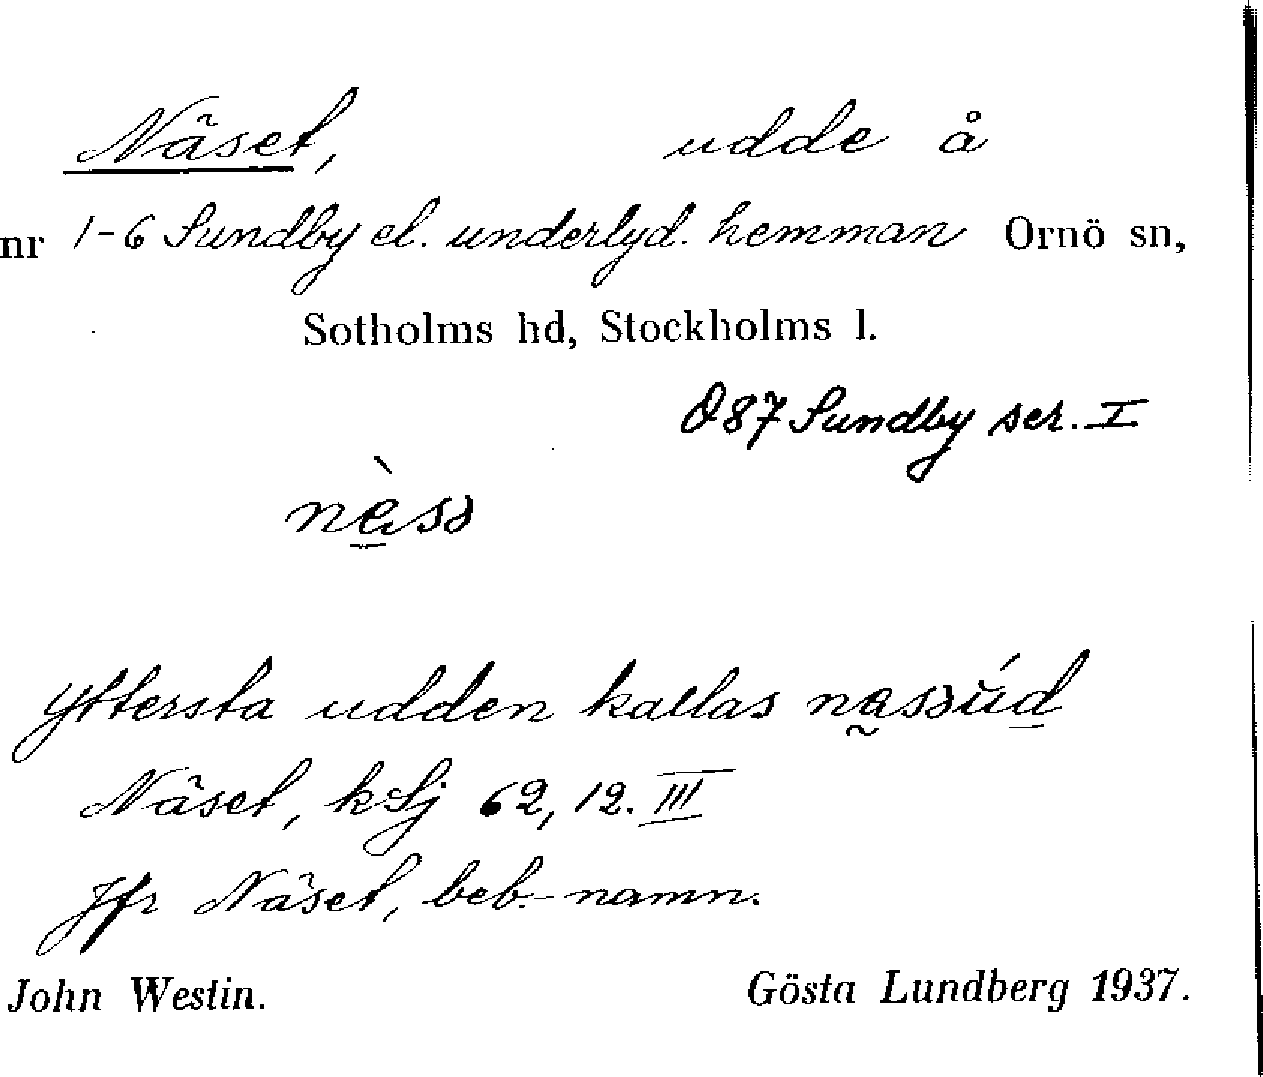 Näset, udde å
nr 1-6 Sundby el. underlyd. hemman Ornö sn,
Sotholms hd, Stockholms l.
Ö87 Sundby ser. I
Yttersta udden kallas
Näset, kSj 62, 12. III
Jfr Näset, beb.-namn.
John Westin. Gösta Lundberg 1937.